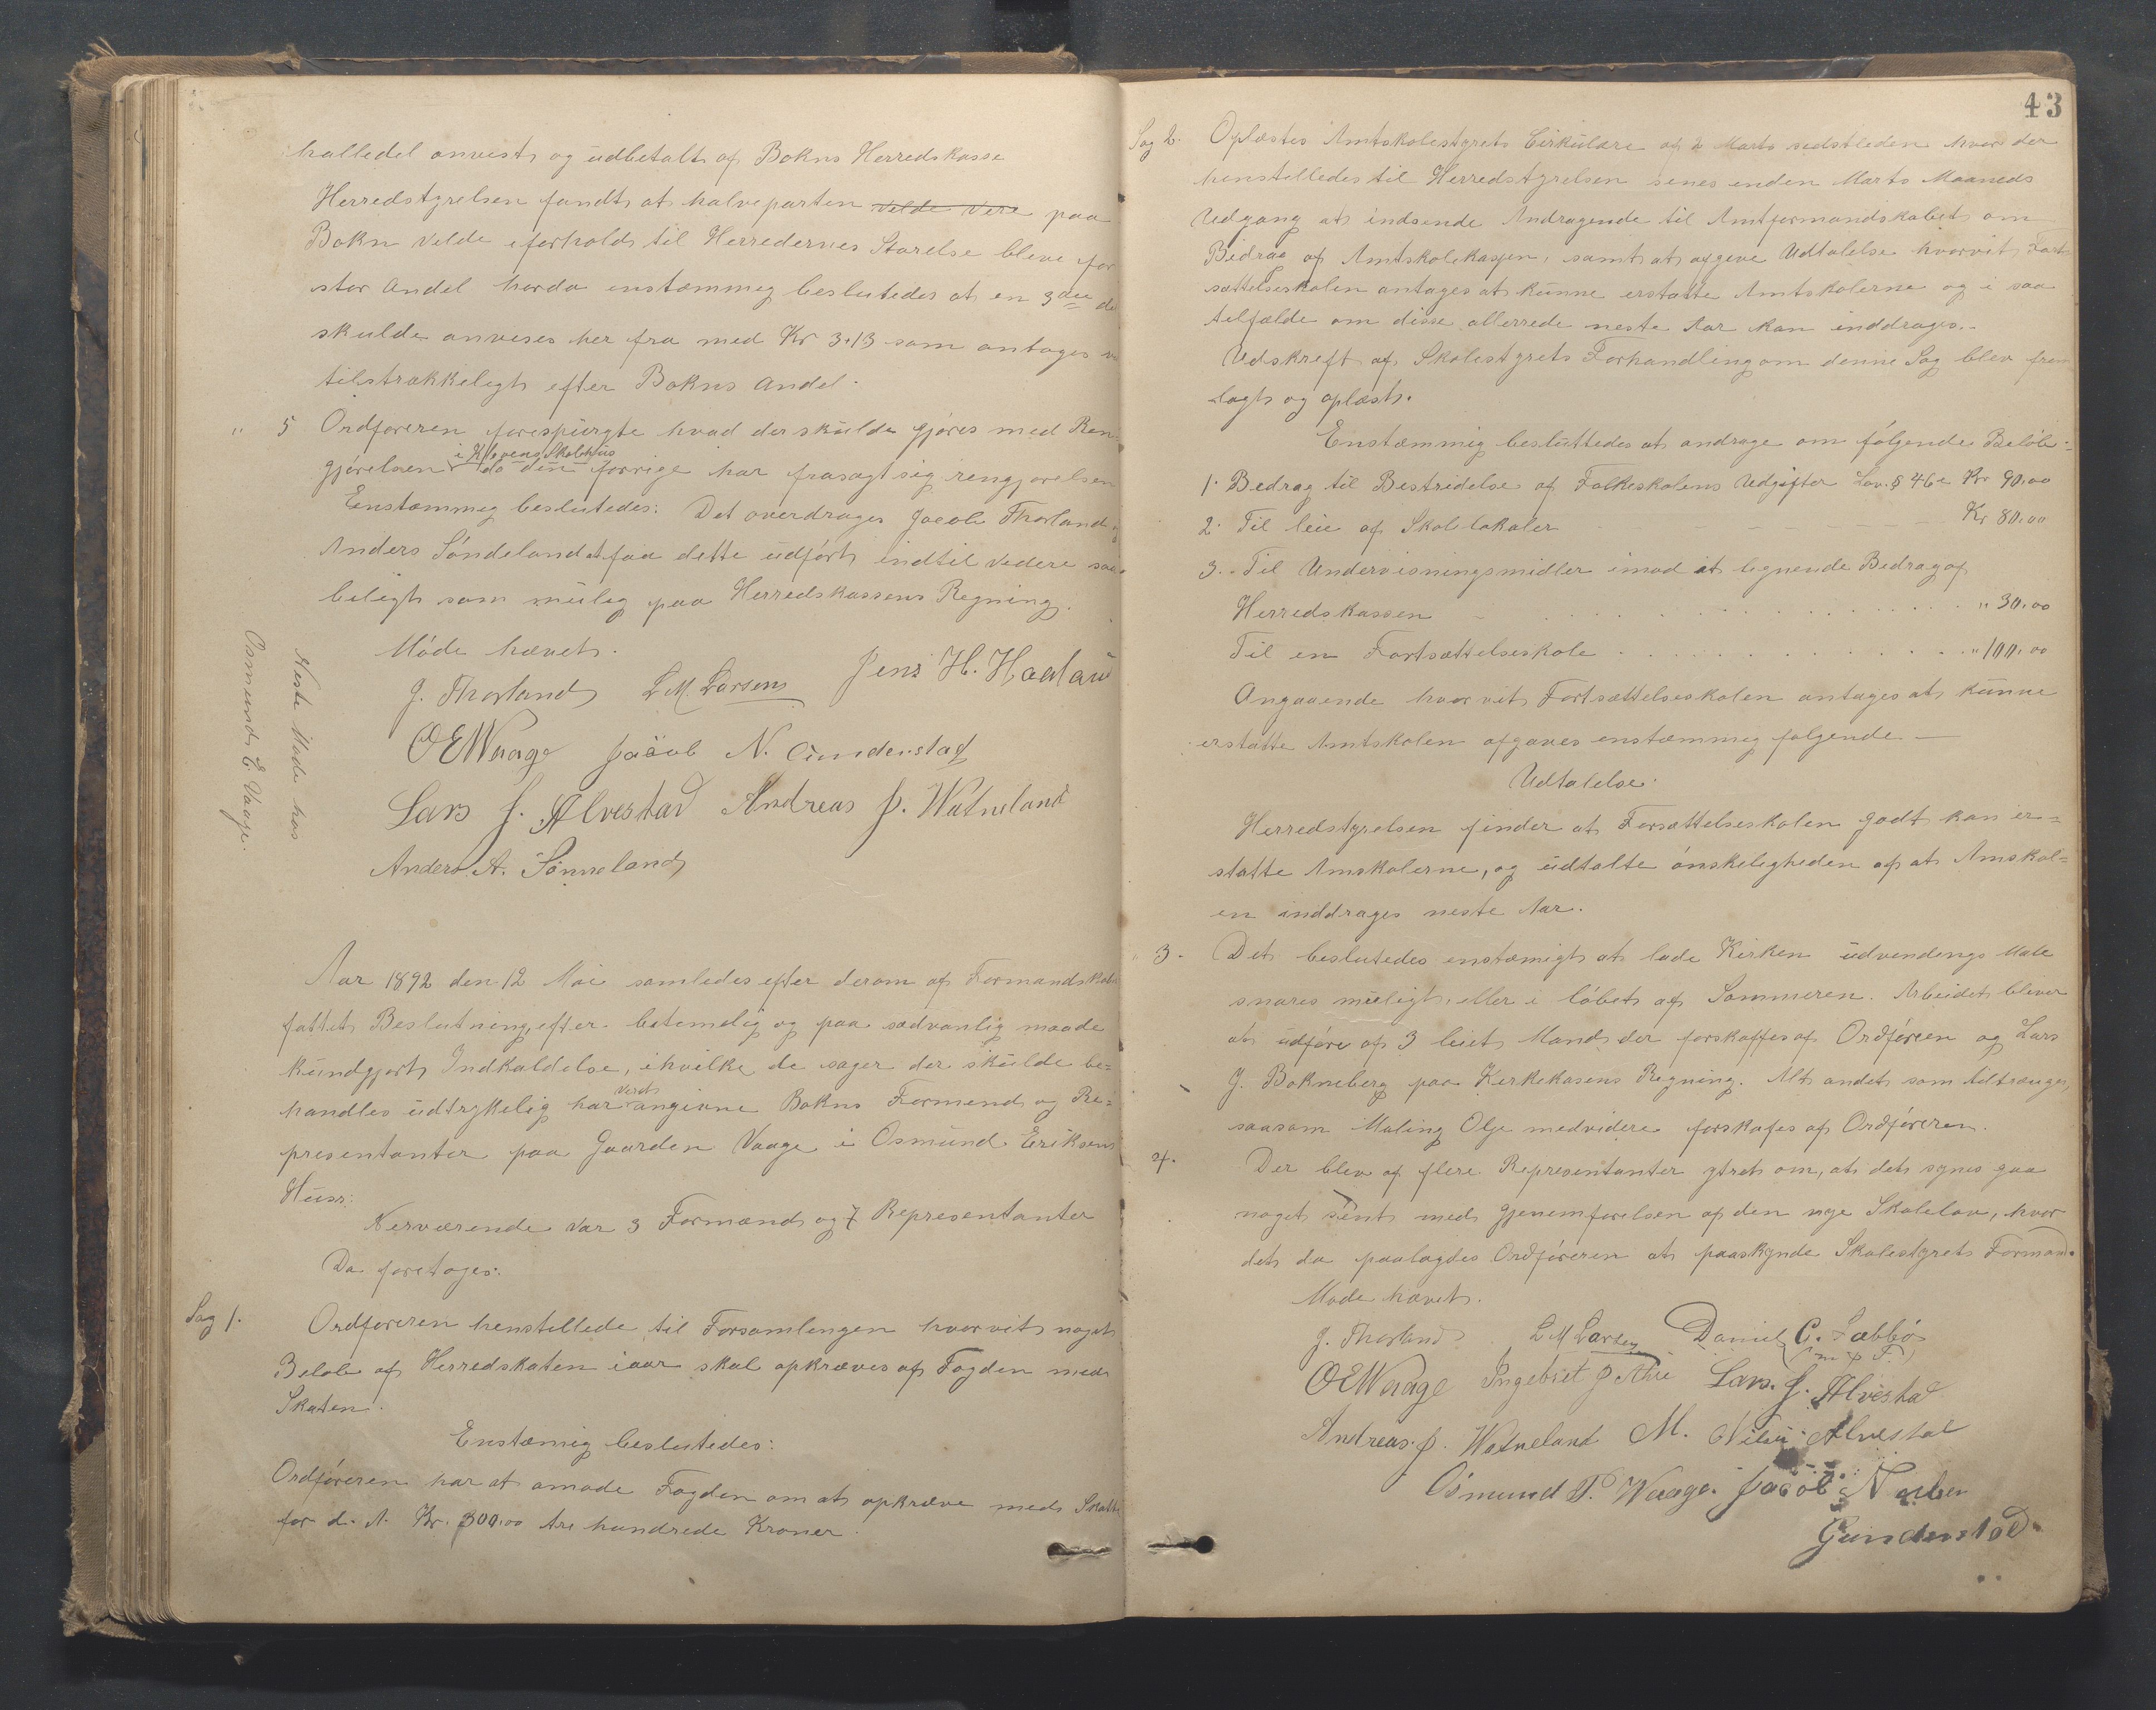 halledel anvist og udbetalt af Bokns Herredskasse
Herredstyrelsen fandt at halveparten vilde være paa
Bokn vilde iforhold til Herredernes Størelse bleve for
stor Andel hvorda enstæmmig beslutedes at en 3die del
skulde anvises her fra med Kr 3.13 som antages
tilstrækkeligt efter Bokns Andel.
" 5 Ordføreren forespurgte hvad der skulde gjøres med Ren-
i Kloveng Skolehus
gjørelsen da den forrige har frasagt sig rengjørelsen
Enstæmmig beslutedes: Det overdrages Jacob Thorland
Anders Søndeland at faa dette udført indtil videre saa
beligt som mulig paa Herredskassens Regning.
Møde hævet.
J. Thorland L M. Larsen Jens H. Haaland
O E Waage Jacob N. Gunderstad
Lars J. Alvestad Andreas J. Watneland
Anders A. Sønneland
Neste Møde hos
Osmund E. Vaage.
Aar 1892 den 12 Mai samledes efter derom af Formandskab
fattet Beslutning, efter betimelig og paa sædvanlig maade
kundgjort Indkaldelse, i hvilke de sager der skulde be=
vert
handles udtrykelig har angivne Bokns Formend og Re=
presentanter paa Gaarden Vaage i Osmund Eriksens
Huus:
Nerværende var 3 Formænd og 7 Representanter
Da foretoges:
Sag 1. Ordføreren henstillede til Forsamlingen hvorvit noget
Beløb af Herredskaten iaar skal opkræves af Fogden med
Skaten.
Enstæmig beslutedes:
Ordføreren har at anmode Fogden om at opkræve med Skatten
for d. A. Kr. 300.00 tre hundrede Kroner.
43
Sag 2. Oplæstes Amtskolestyrets Cirkulære af 2 Marts sidstleden hvor der
henstilledes til Herredstyrelsen senes enden Marts Maaneds
Udgang at indsende Andragende til Amtformandskabet om
Bidrag af Amtskolekassen, samt at afgive Udtalelse hvorvit Fort
sættelseskolen antages at kunne erstatte Amtskolerne og i saa
tilfælde om disse allerrede neste Aar kan inddrages.
Udskreft af Skolestyrets Forhandling om denne Sag blev frem
lagt og oplæst.
Enstæmmig besluttedes at andrage om følgende Beløb:
1. Bedrag til Bestridelse af Folkeskolens Udgifter Lov. § 46 e Kr 90.00
2. Til leie af Skolelokaler Kr 80.00
3. Til Undervisningsmidler imod et lignende Bedrag af
Herredskassen " 30.00
Til en Fortsættelseskole " 100.00
Angaaende hvorvit Fortsættelseskolen antages at kunne
erstatte Amtskolen afgaves enstæmmig følgende —
Udtalelse.
Herredstyrelsen finder at Forsættelseskolen godt kan er=
statte Amskolerne, og udtalte ønskeligheden af at Amskol=
en inddrages neste Aar.
" 3. Det beslutedes enstæmigt at lade Kirken udvendings Male
snares muligt, eller i løbet af Sommeren. Arbeidet bliver
at udføre af 3 leiet Mand der forskaffes af Ordføreren og Lars
J. Bokneberg paa Kirkekasens Regning. Alt andet som tiltrænges,
saasom Maling Olje medvidere forskafes af Ordføreren.
4. Der blev af flere Representanter ytret om, at det synes gaa
noget sent med gjenemførelsen af den nye Skolelov, hvor
det da paalagdes Ordføreren at paaskynde Skolestyrets Formand.
Møde hævet.
J. Thorland L M Larsen Daniel C. Sæbbø
(m p F.)
O E Waage Ingebret J Are Lars. J. Alvestad
Andreas. J. Watneland M. Nilsn Alvestad
Osmund T. Waage. Jacob N
Gunderstad